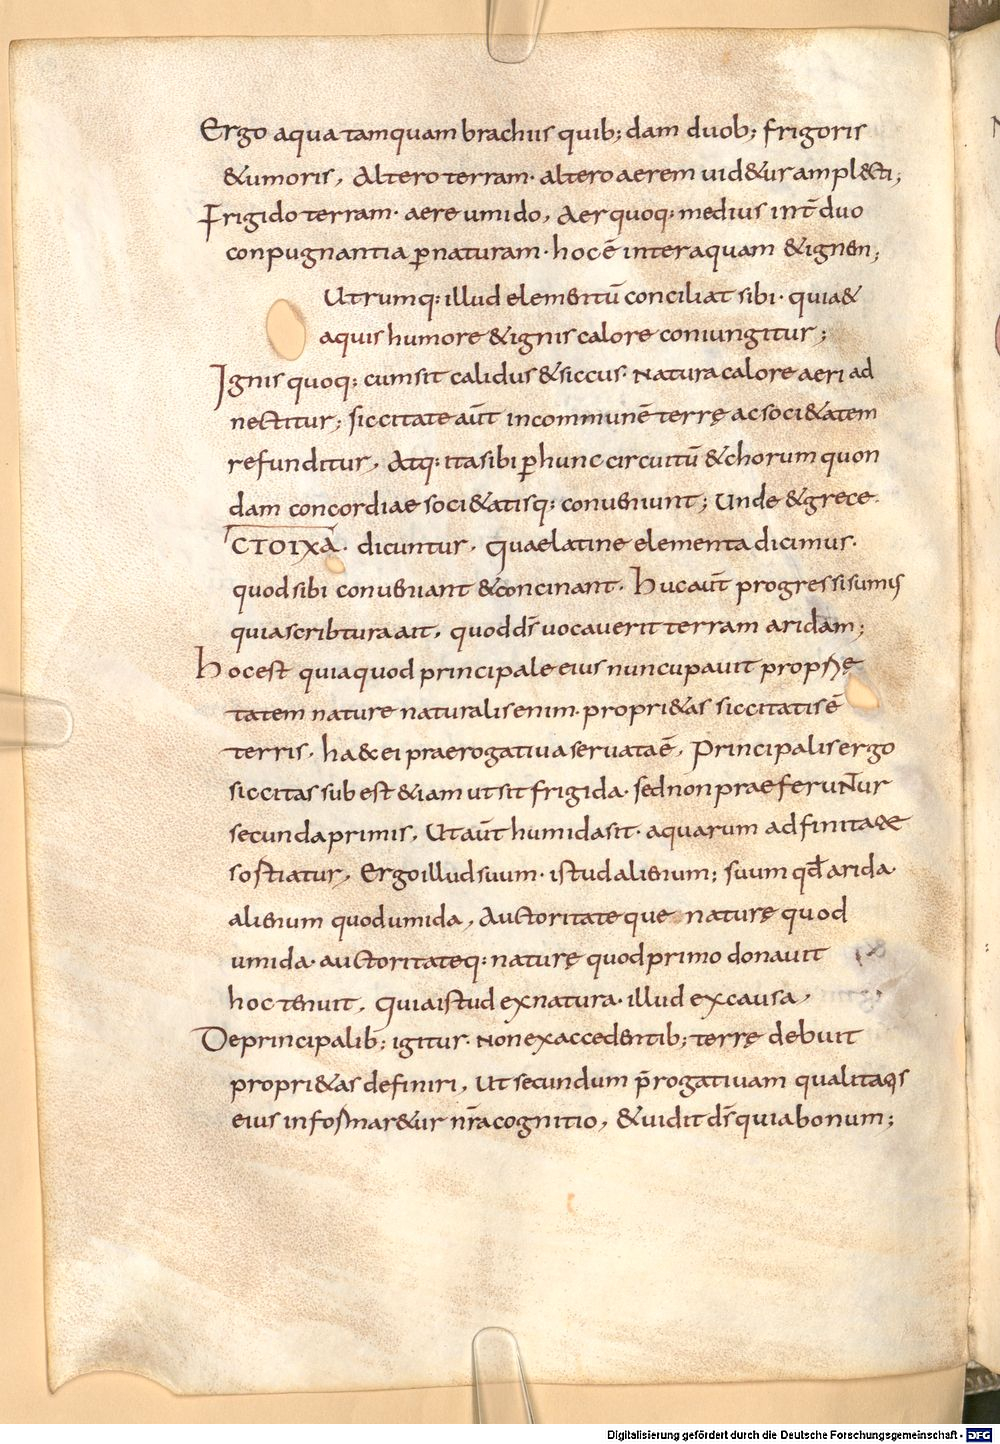 Ergo aqua tamquam brachiis quib; dam duob; frigoris
&umoris, Altero terram· altero aerem uid&ur ampl&cti;
Frigido terram· aere umido, Aer quoq: medius int̄ duo
conpugnantia ꝑnaturam· hocē inter aquam &ignen;
Utrumq: illud elementū conciliat sibi· quia&
aquis humore &ignis calore coniungitur;
Ignis quoq: cum sit calidus &siccus· Natura calore aeri ad
nectitur; siccitate aūt incommunē terrę ac soci&atem
refunditur, Atq: ita sibi ꝑ hunc circuitū &chorum quon
dam concordiae soci&atisq: conueniunt; Unde &grece·
CTOIXA· dicuntur, quae latine elementa dicimus·
quod sibi conueniant &concinant· Huc aūt progressi sumus
quia scribtura ait, quod dś uocauerit terram aridam;
Hoc est quia quod principale eius nuncupauit proprię
tatem nature naturalis enim· propri&as siccitatis ē
terris, ha&c ei praerogatiua seruata ē, Principalis ergo
siccitas subest &iam ut sit frigida· sed non praeferuntur
secunda primis, Ut aūt humida sit· aquarum adfinitate
sostiatur, Ergo illud suum· istud alienum; suum qđ arida·
alienum quod umida, Auctoritate que naturę quod
umida· auctoritateq: naturę quod primo donauit
hoc tenuit, quia istud ex natura· illud ex causa,
De principalib; igitur· Non ex accedentib; terrę debuit
propri&as definiri, Ut secundum p̄rogatiuam qualitatis
eius informar&ur nr̄a cognitio, &uidit dś quia bonum;
Digitalisierung gefördert durch die Deutsche Forschungsgemeinschaft - DFG